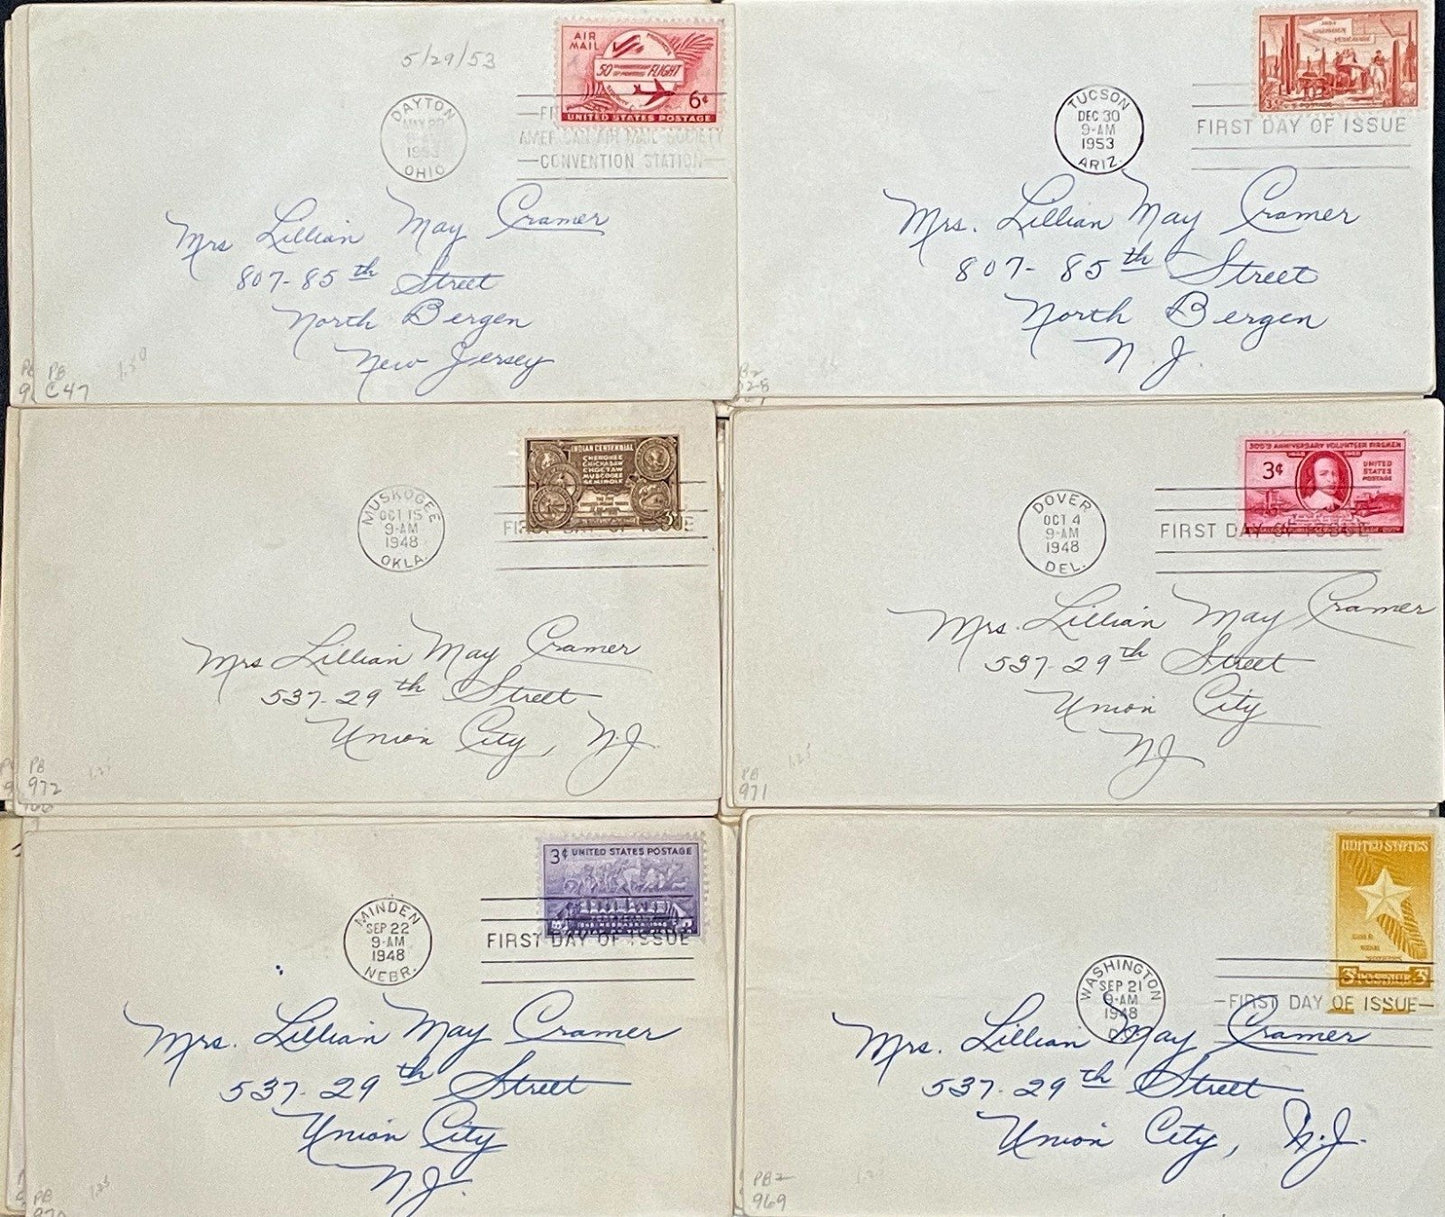 5/29/53
AIR
MAIL
50
FLIGHT
6¢
UNITED STATES POSTAGE
DAYTON
1953
OHIO
AMERICAN AIR MAIL SOCIETY
CONVENTION STATION
Mrs Lillian May Cramer
807-85th Street
North Bergen
New Jersey
PB
C47
1.50
TUCSON
DEC 30
9-AM
1953
ARIZ.
FIRST DAY OF ISSUE
Mrs. Lillian May Cramer
807-85th Street
North Bergen
N.J.
INDIAN CENTENNIAL
CHEROKEE
CHICKASAW
CHOCTAW
MUSCOGEE
SEMINOLE
3¢
MUSKOGEE
OCT 15
9-AM
1948
OKLA.
FIRST DAY OF ISSUE
Mrs Lillian May Cramer
537-29th Street
Union City, N.J.
PB
972
1.25
300TH ANNIVERSARY VOLUNTEER FIREMEN
3¢
UNITED
STATES
POSTAGE
DOVER
OCT 4
9-AM
1948
DEL.
FIRST DAY OF ISSUE
Mrs. Lillian May Cramer
537-29th Street
Union City
NJ
PB
971
1.25
3¢ UNITED STATES POSTAGE
MINDEN
SEP 22
9-AM
1948
NEBR.
FIRST DAY OF ISSUE
Mrs. Lillian May Cramer
537-29th Street
Union City
N.J.
PB
1.25
UNITED STATES
3¢ POSTAGE 3¢
WASHINGTON
SEP 21
9-AM
1948
FIRST DAY OF ISSUE
Mrs. Lillian May Cramer
537-29th Street
Union City, N.J.
PB2
969